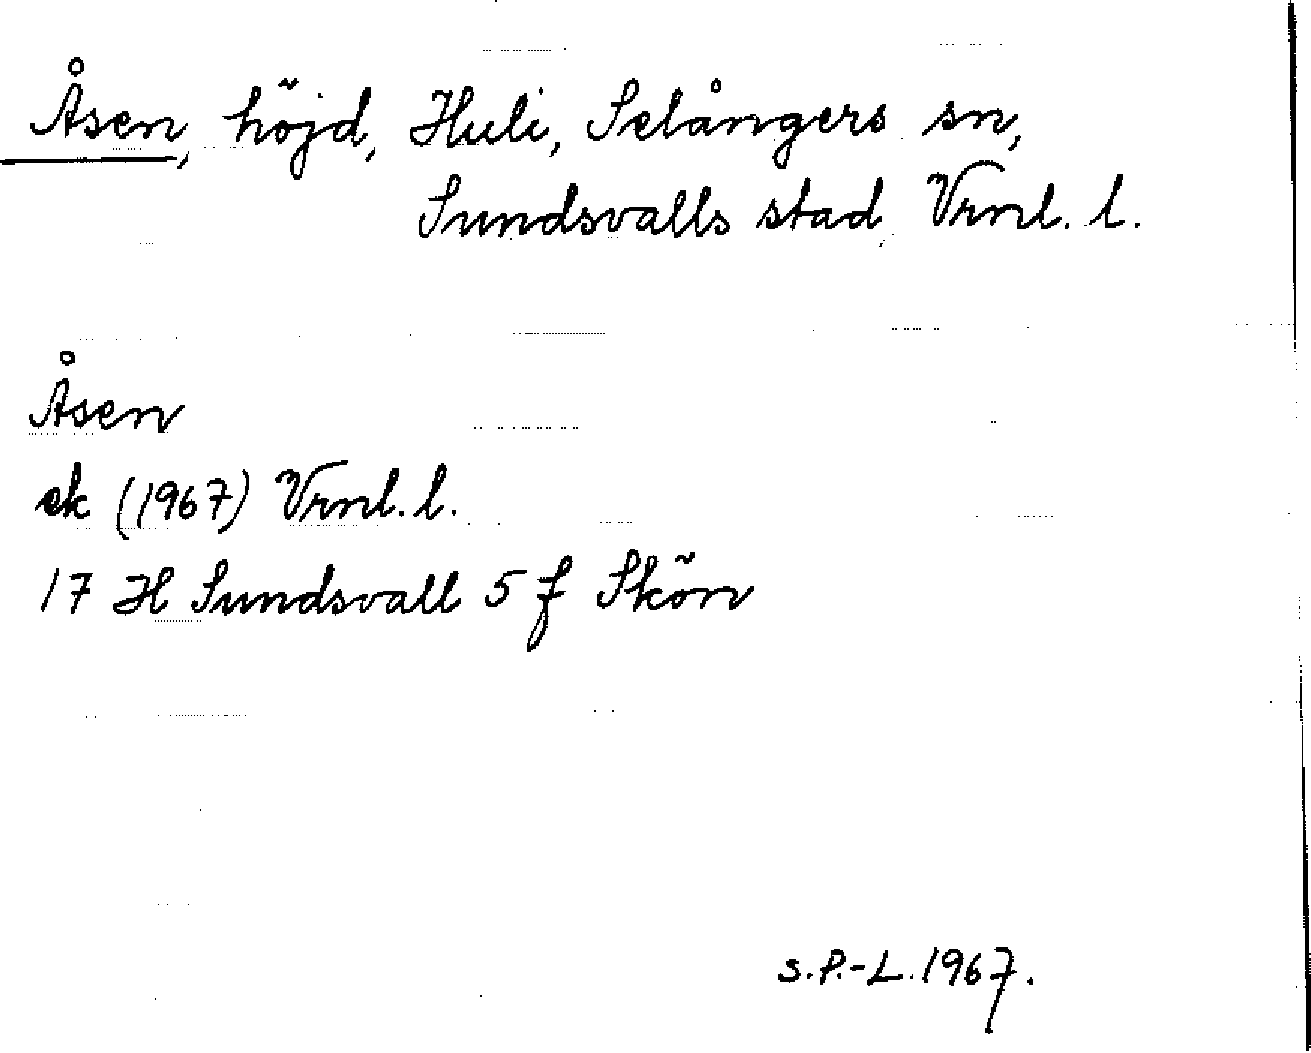 Åsen, höjd, Huli, Selångers sn,
Sundsvalls stad, Vrnl. l.
Åsen
ek (1967) Vrnl. l.
17 H Sundsvall 5 f Skön
S.P.-L. 1967.